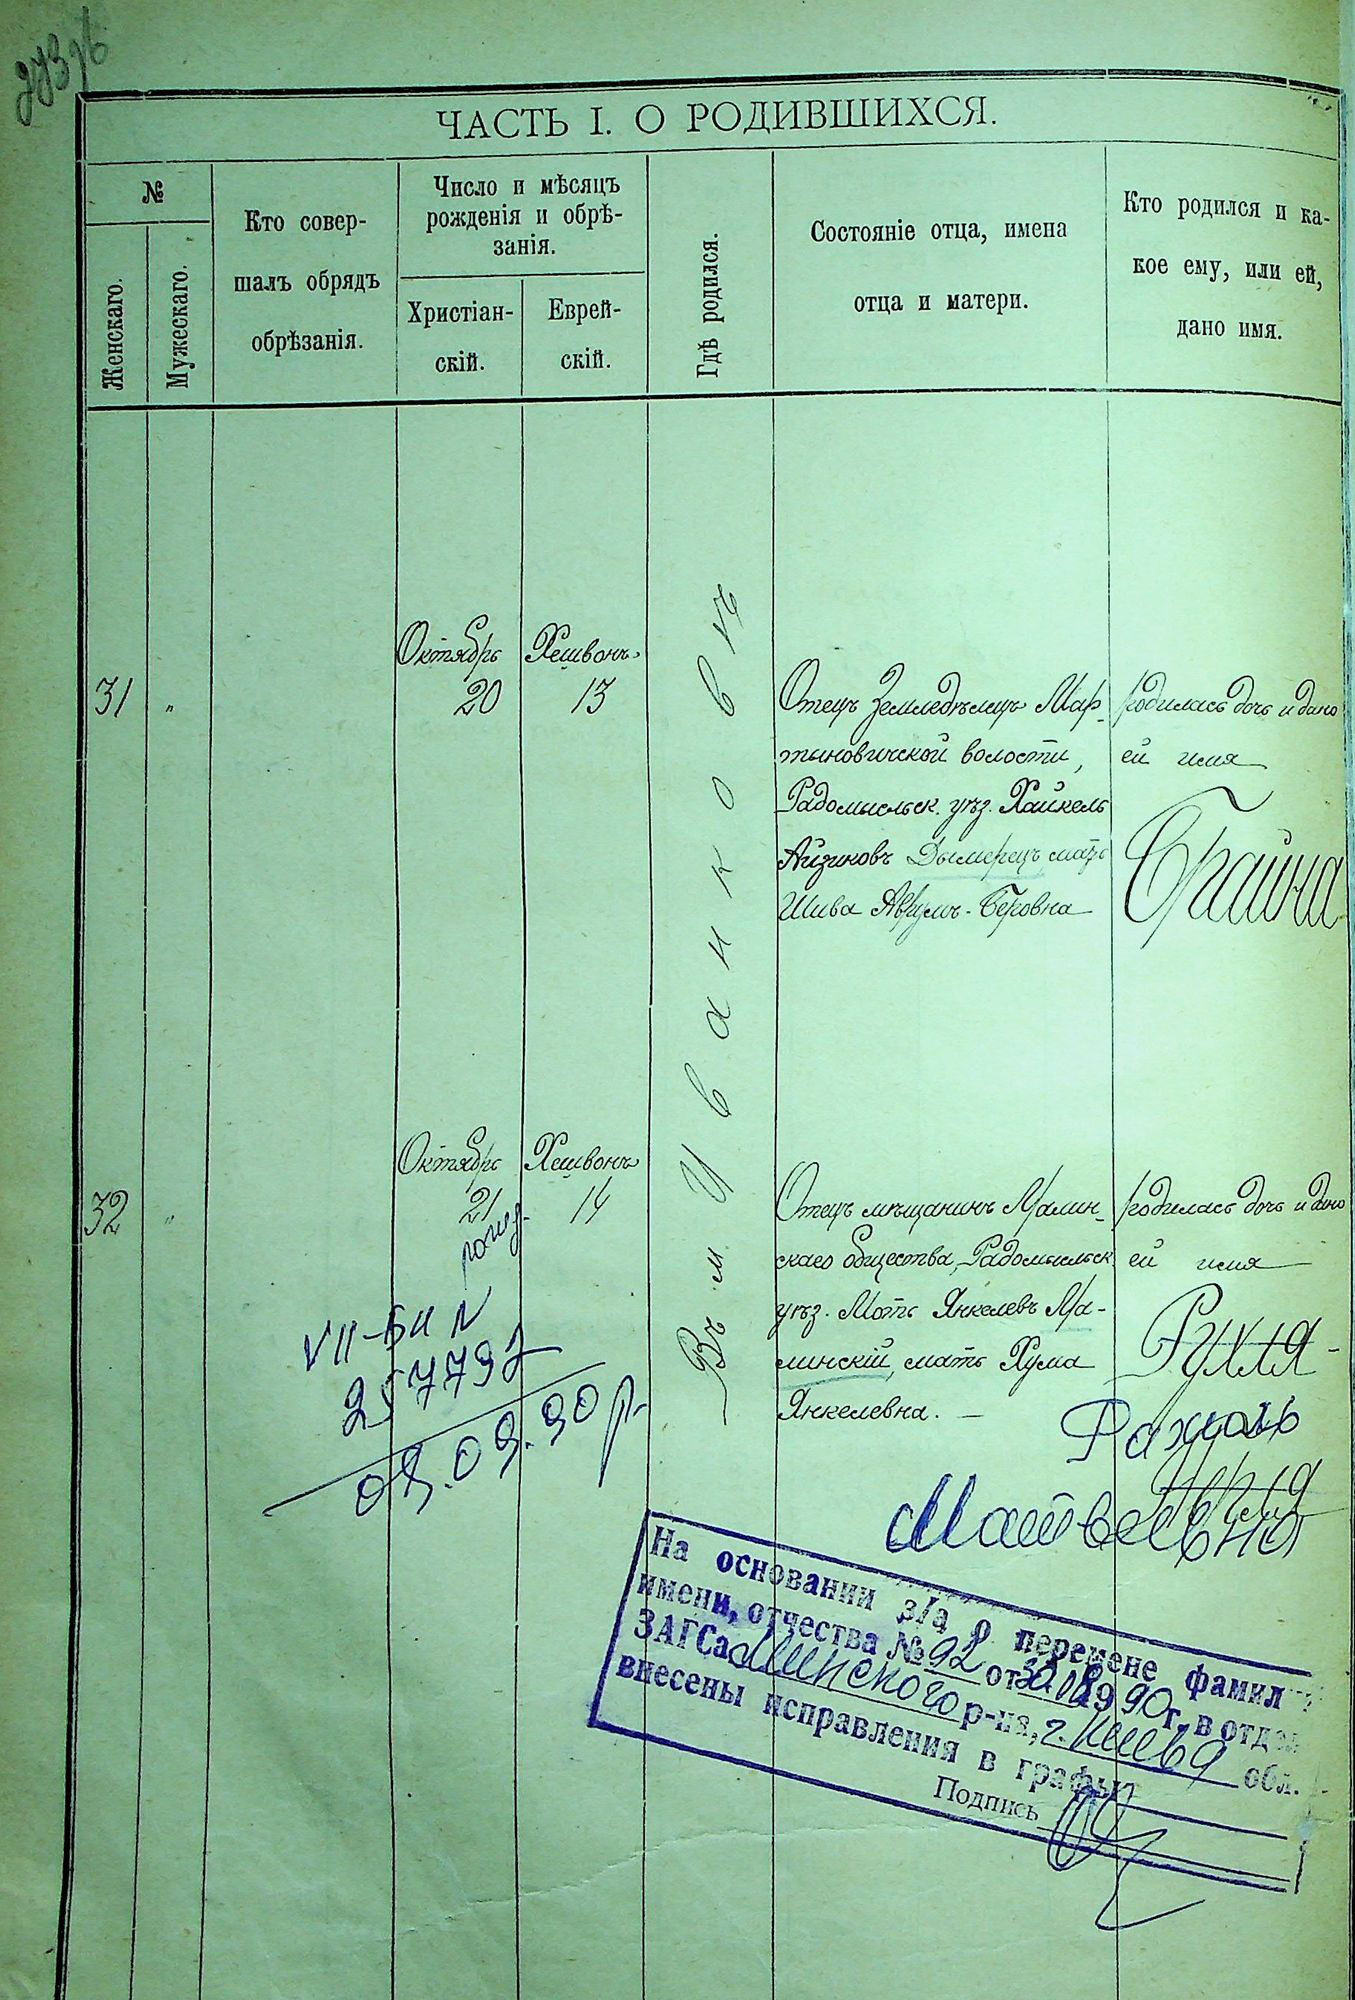 ЧАСТЬ I. О РОДИВШИХСЯ.
№
Женскаго.
Мужескаго.
Кто совер-
шалъ обрядъ
обрѣзанія.
Число и мѣсяцъ
рожденія и обрѣ-
занія.
Христіан-
скій.
Еврей-
скій.
Гдѣ родился.
Состояніе отца, имена
отца и матери.
Кто родился и ка-
кое ему, или ей,
дано имя.
Въ м Иванковѣ
31 "
Октябрь
20
Хешвонъ
13
Отецъ Земледѣлецъ Мар-
тыновичской волости,
Радомысльск. уѣз. Хайкель
Айзиковъ Дымерецъ, мать
Шива Аврумъ-Беровна
родилась дочь и дано
ей имя
Брайна
32 "
Октябрь
21
рожд.
Хешвонъ
14
Отецъ мѣщанинъ Малин-
скаго общества, Радомысльск
уѣз. Моть Янкелевъ Ма-
линскій, мать Хума
Янкелевна. —
родилась дочь и дано
ей имя
Рухля
Рахиль
Матвеевна
VII-БИ N
257792
03.09.90 р.
На основании з/а о перемене фамил
имени, отчества № 92 от 30.08 1990 г. в отдел
ЗАГСа Минского р-на, г. Киева обл.
внесены исправления в графы
Подпись